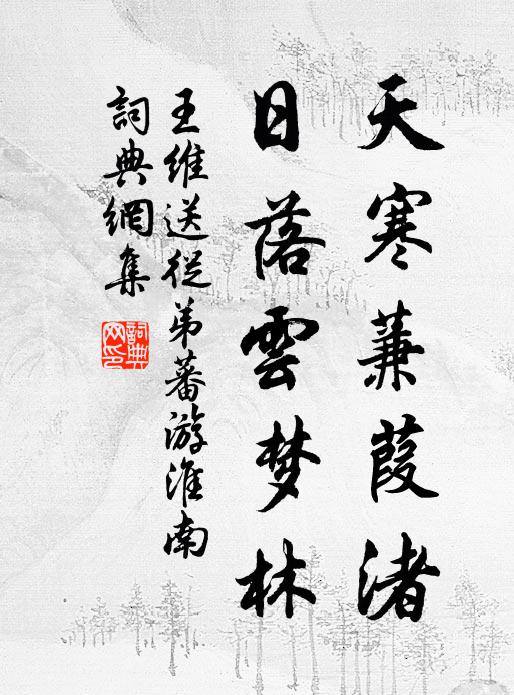 天寒蒹葭渚
日落雲梦林
王維送從弟蕃游淮南
詞典網集
詞典
网印